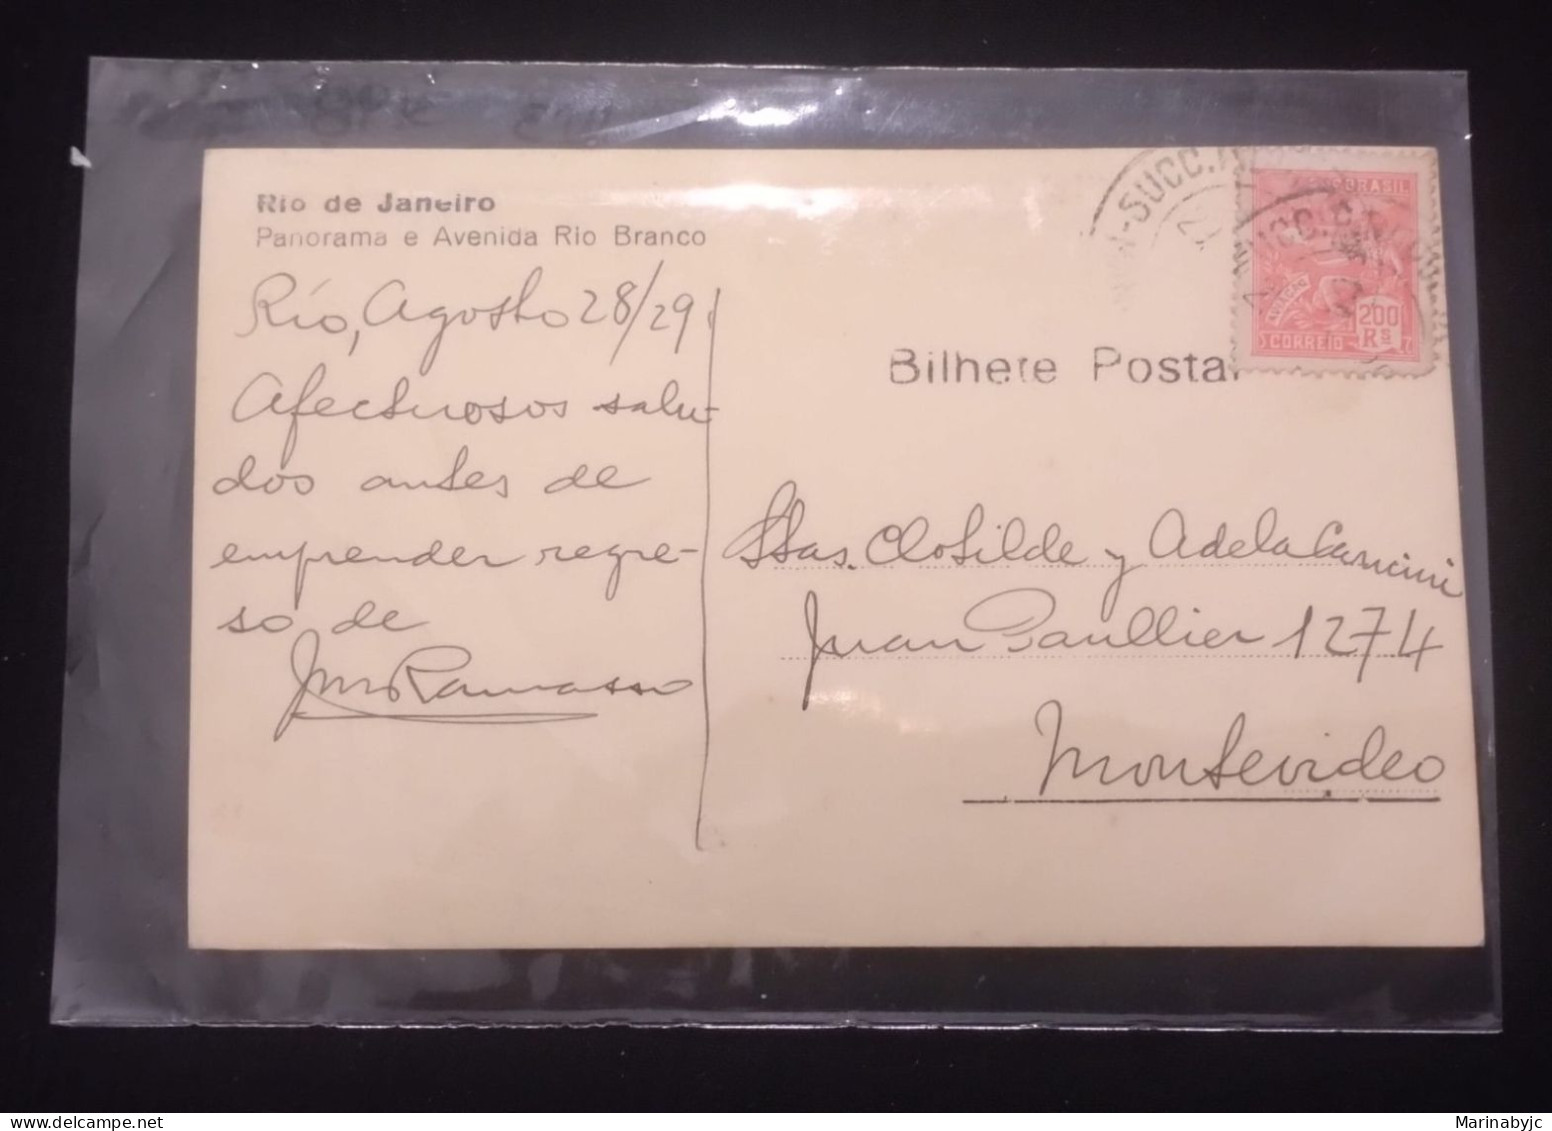 Rio de Janeiro
Panorama e Avenida Rio Branco
Río, Agosto 28/29
Afectuosos salu-
dos antes de
emprender regre-
so de
Ramasso
Bilhete Postal
BRASIL
AVIAÇÃO
200
Rs
CORREIO
Stas. Clotilde y Adela Cancini
Juan Paullier 1274
Montevideo
Marinabyjc